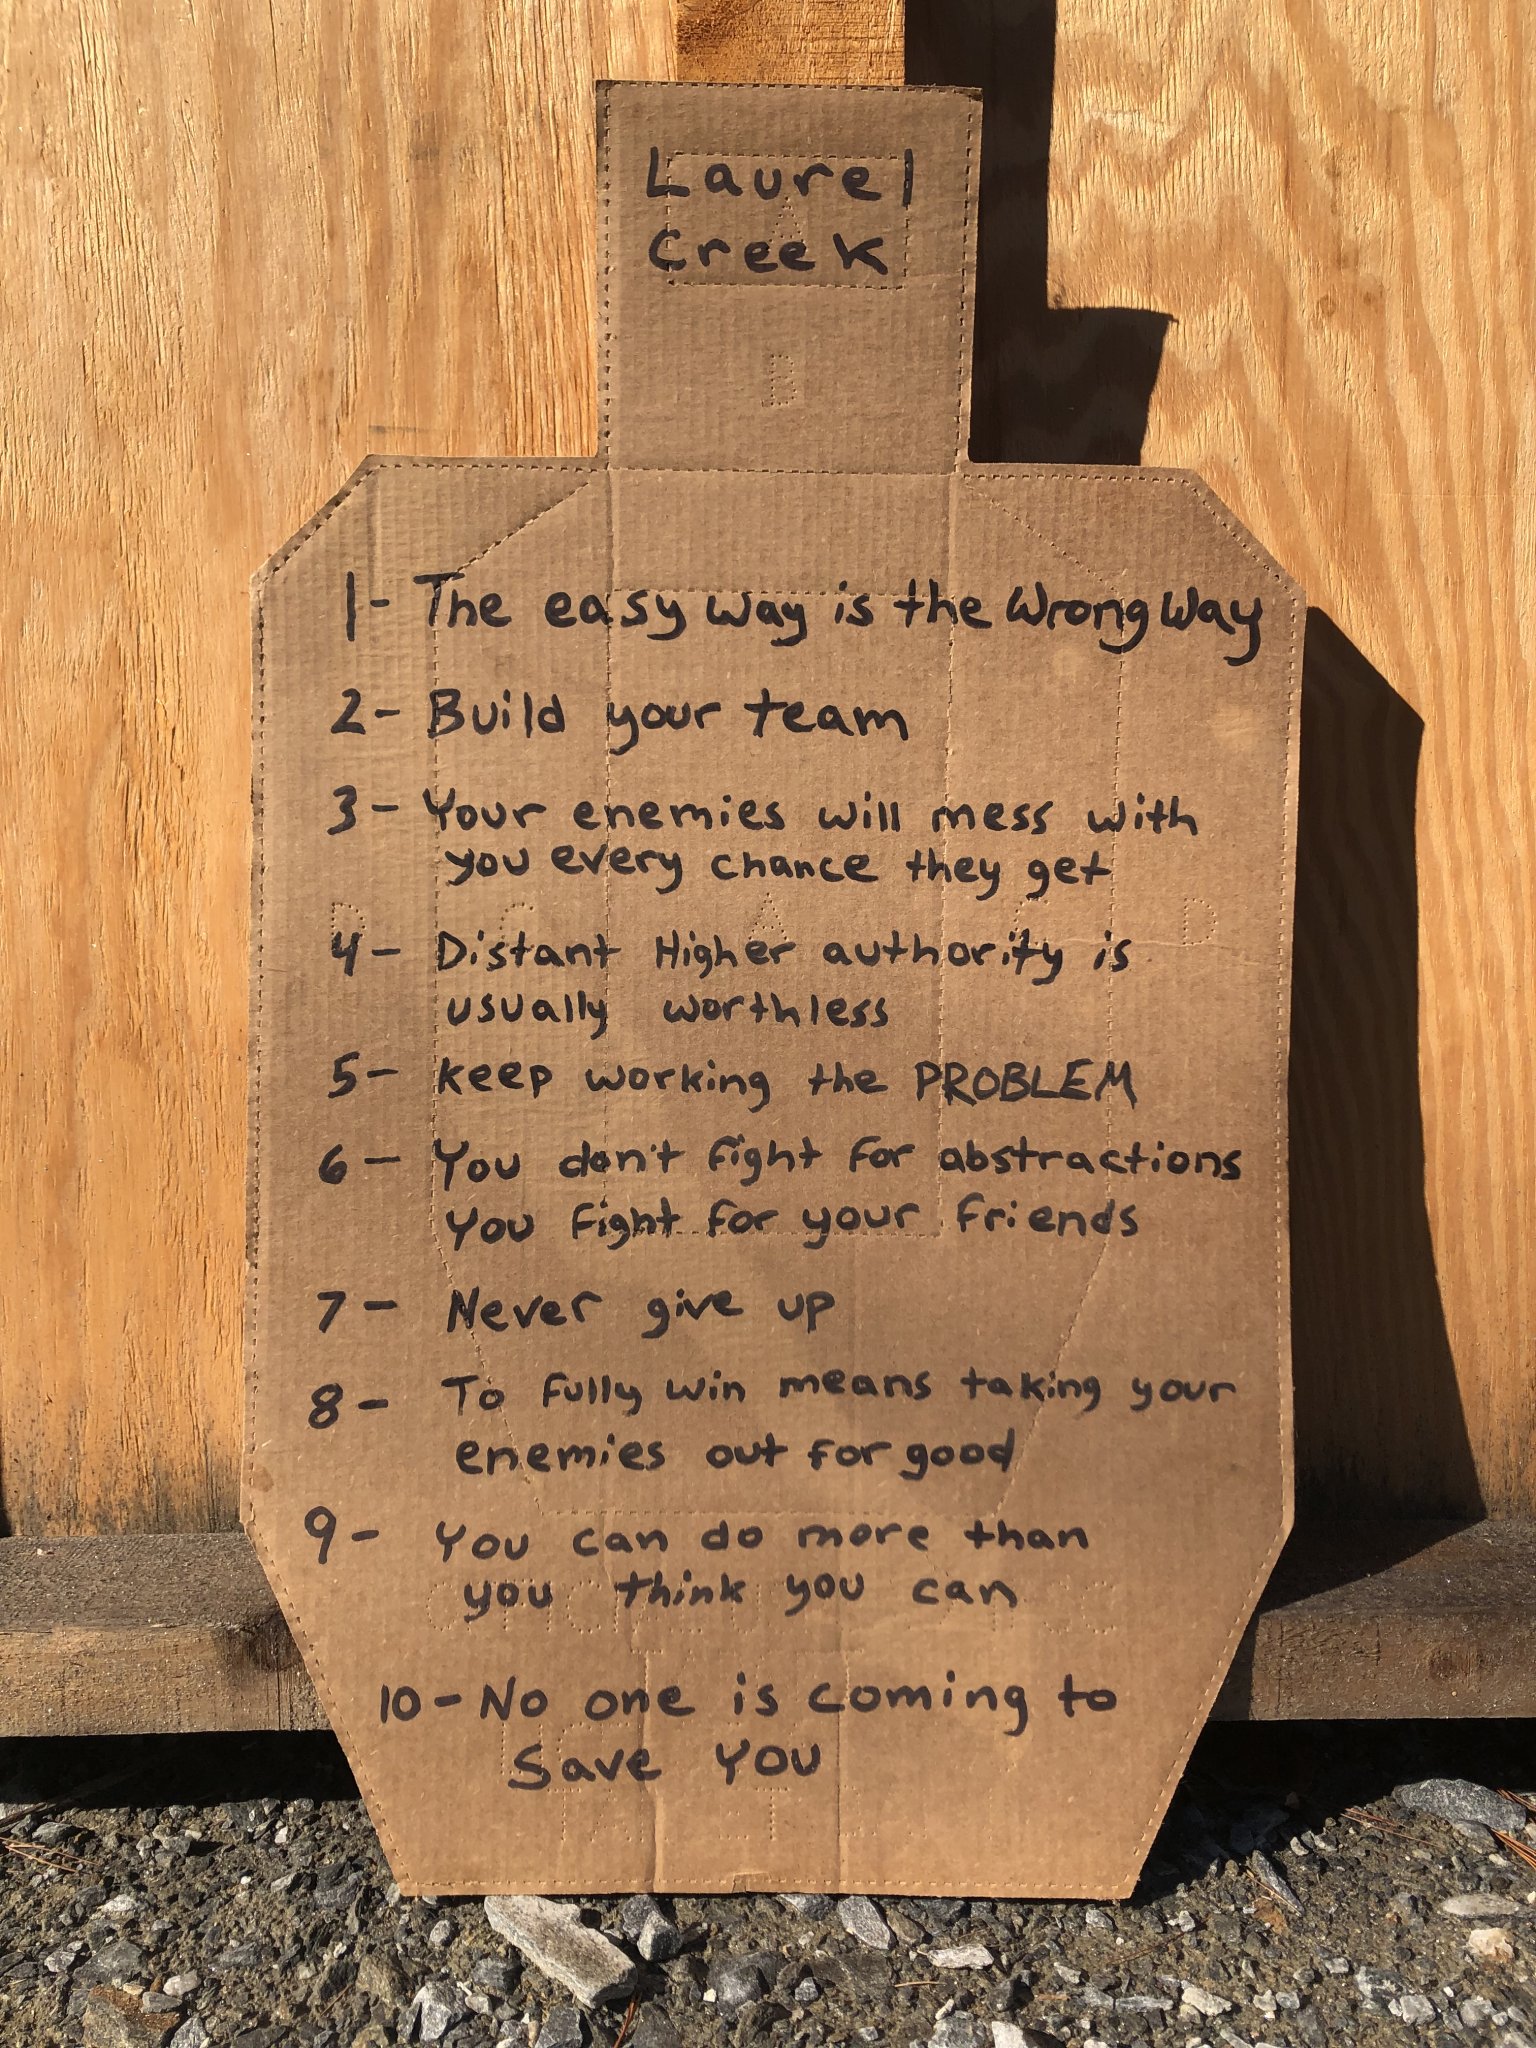 Laurel
Creek
B
1- The easy way is the Wrong Way
2- Build your team
3- Your enemies will mess with
you every chance they get
D C A C D
4- Distant Higher authority is
usually worthless
5- keep working the PROBLEM
6- You don't fight for abstractions
You fight for your friends
7- Never give up
8- To fully win means taking your
enemies out for good
9- You can do more than
you think you can
10- No one is coming to
Save YOU